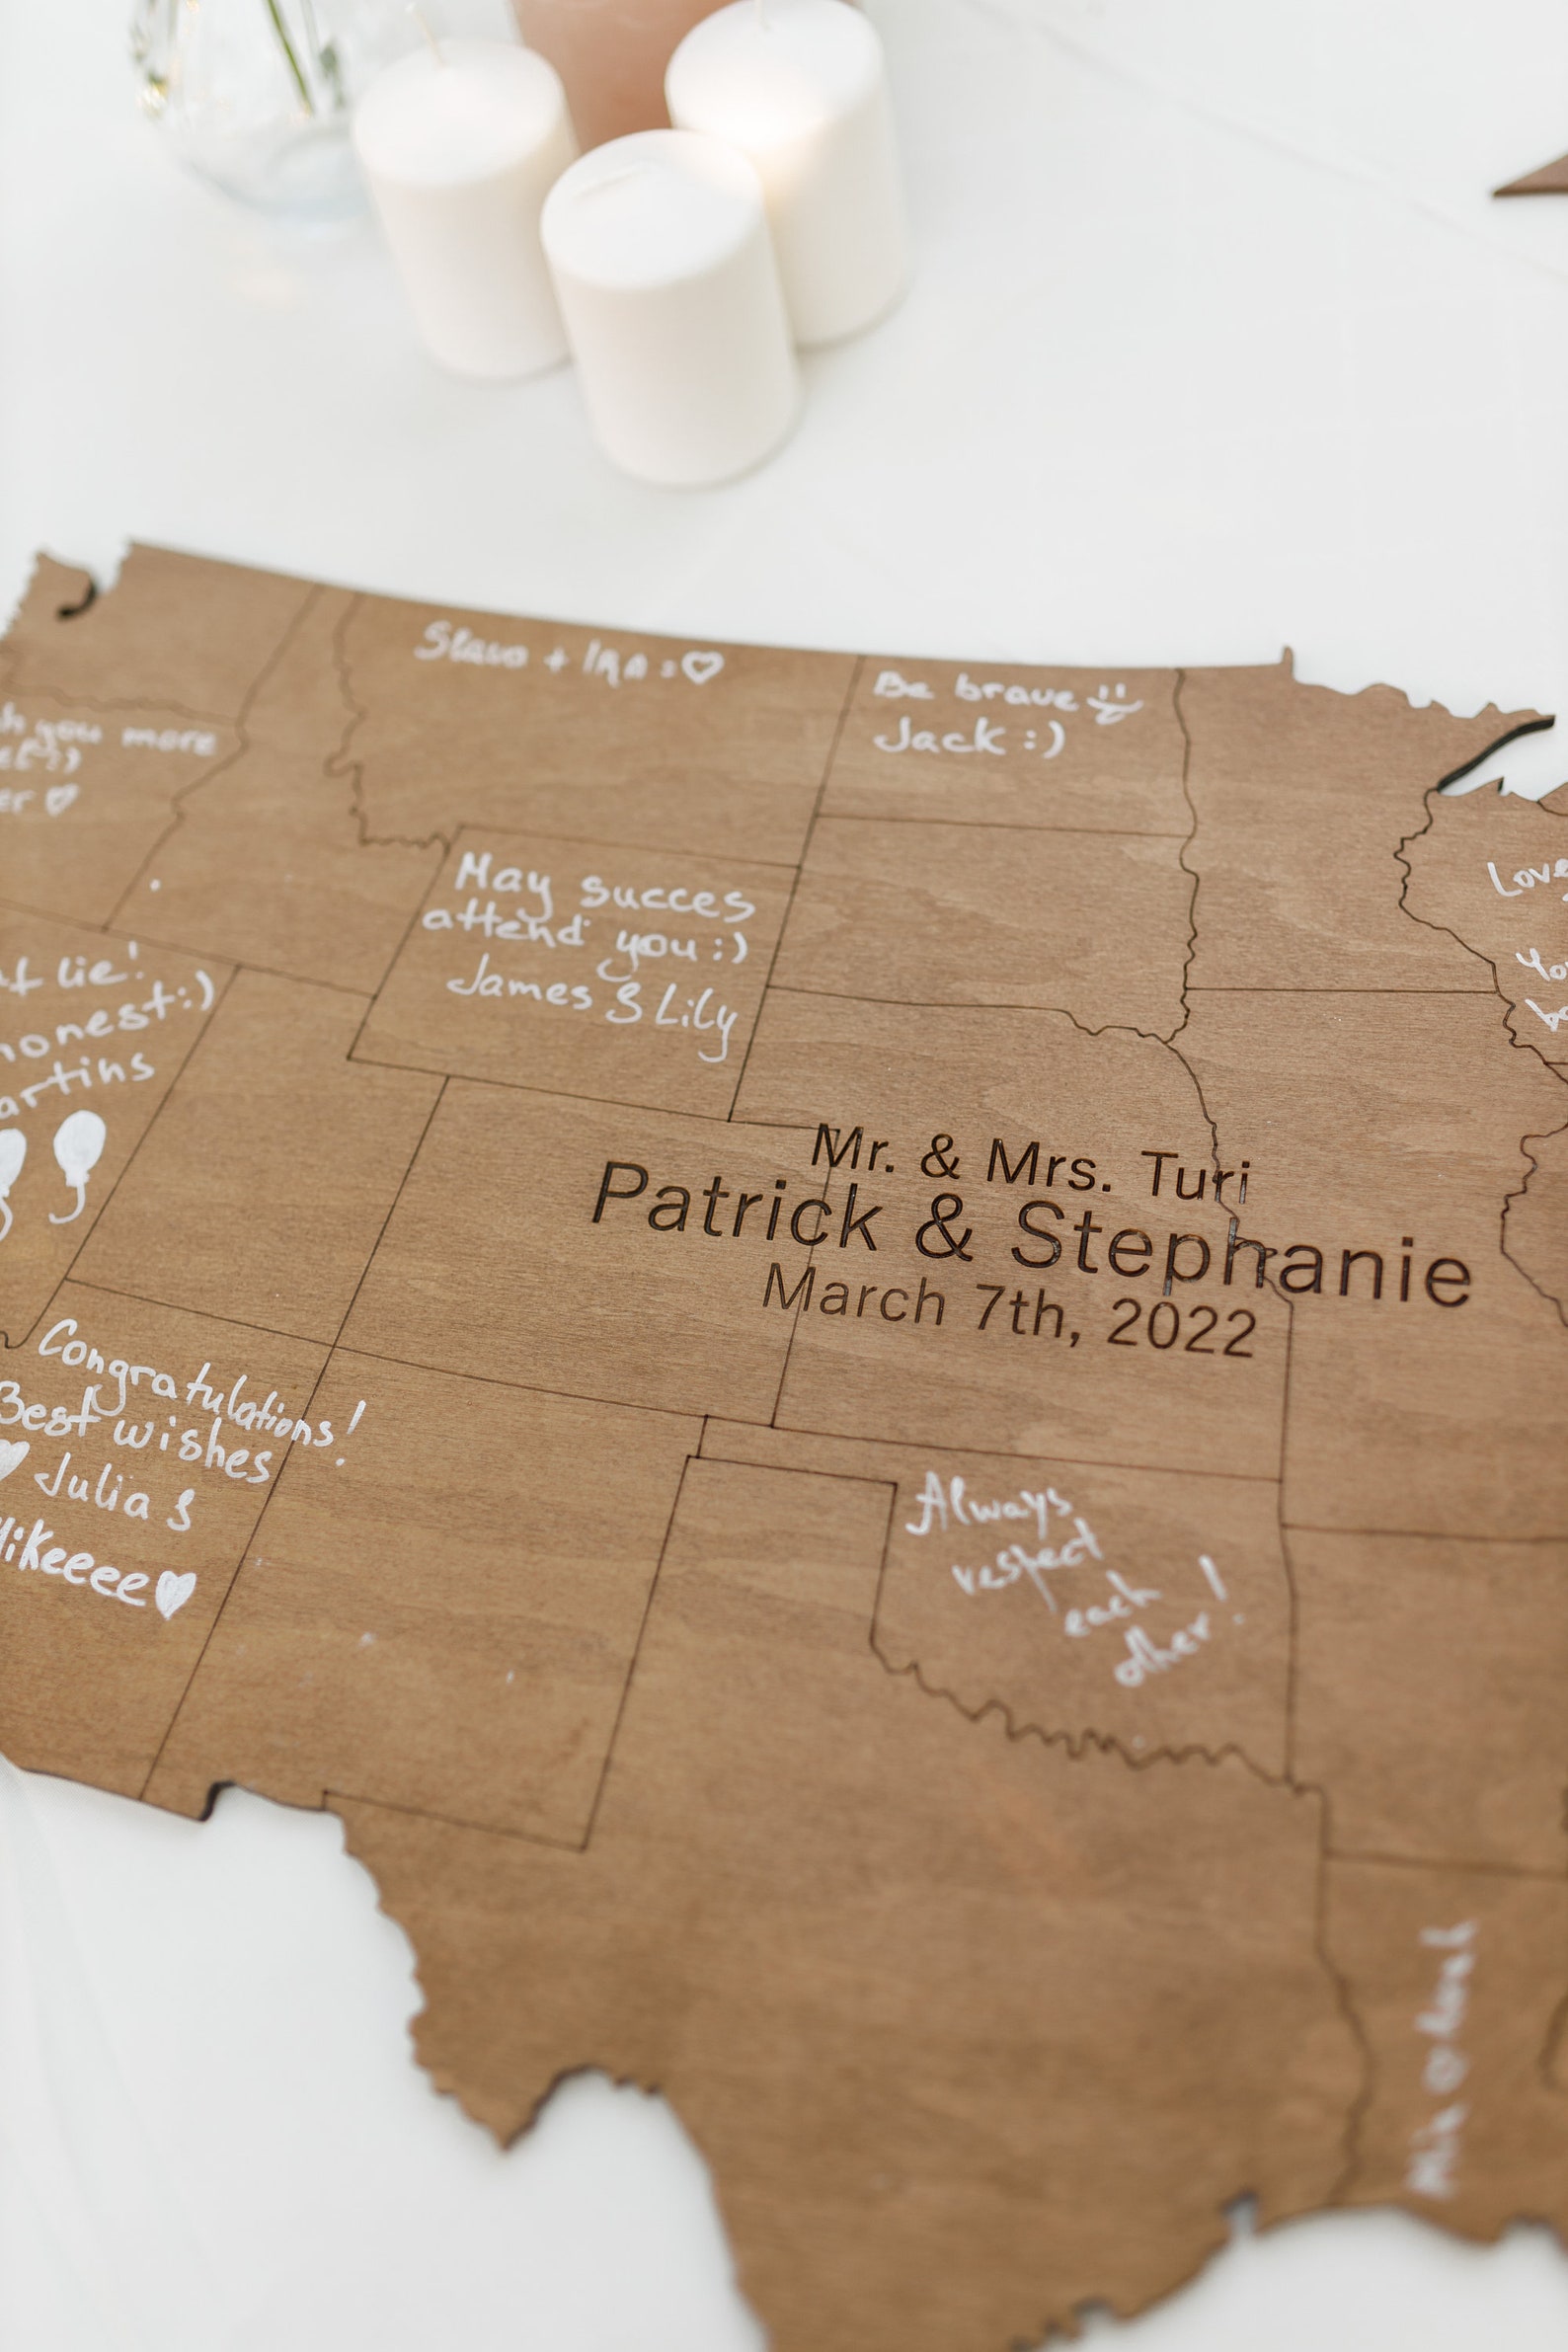 Slavo + IRA = ♡
Be brave
Jack :)
you more
May succes
attend you :)
James & Lily
lie!
:)
Love
Mr. & Mrs. Turi
Patrick & Stephanie
March 7th, 2022
Congratulations!
Best wishes
♥ Julia &
ikeeee ♥
Always
respect
each
other!